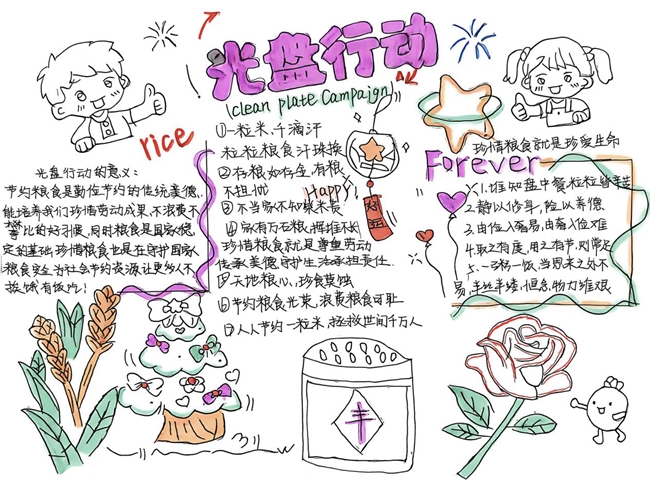 光盘行动
(clean plate Campaign)
rice
Happy
好运
Forever
丰
光盘行动的意义:
节约粮食是勤俭节约的传统美德,
能培养我们珍惜劳动成果,不浪费不
攀比的好习惯,同时粮食是国家稳
定的基础,珍惜粮食也是在守护国家
粮食安全,为社会节约资源,让更多人不
挨饿有饭吃!
①一粒米,千滴汗
粒粒粮食汗珠换
②存粮如存金,有粮
不担忧
③不当家不知柴米贵
④家有万石粮,挥难不长
珍惜粮食就是尊重劳动
传承美德守护生活承担责任
⑤天地粮心,珍食莫蚀
⑥节约粮食光荣,浪费粮食可耻
⑦人人节约一粒米,拯救世间千万人
珍惜粮食就是珍爱生命
1.谁知盘中餐,粒粒皆辛苦
2.静以修身,俭以养德
3.由俭入奢易,由奢入俭难
4.取之有度,用之有节,则常足
5.一粥一饭,当思来之处不
易,半丝半缕,恒念物力维艰